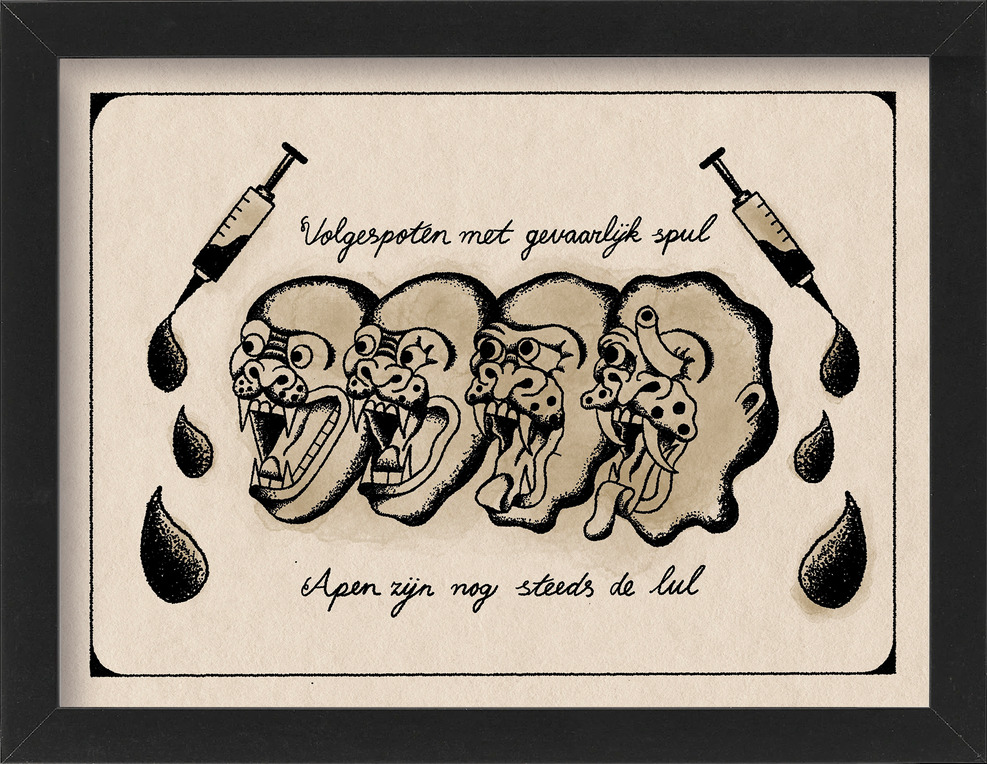 Volgespoten met gevaarlijk spul
Apen zijn nog steeds de lul